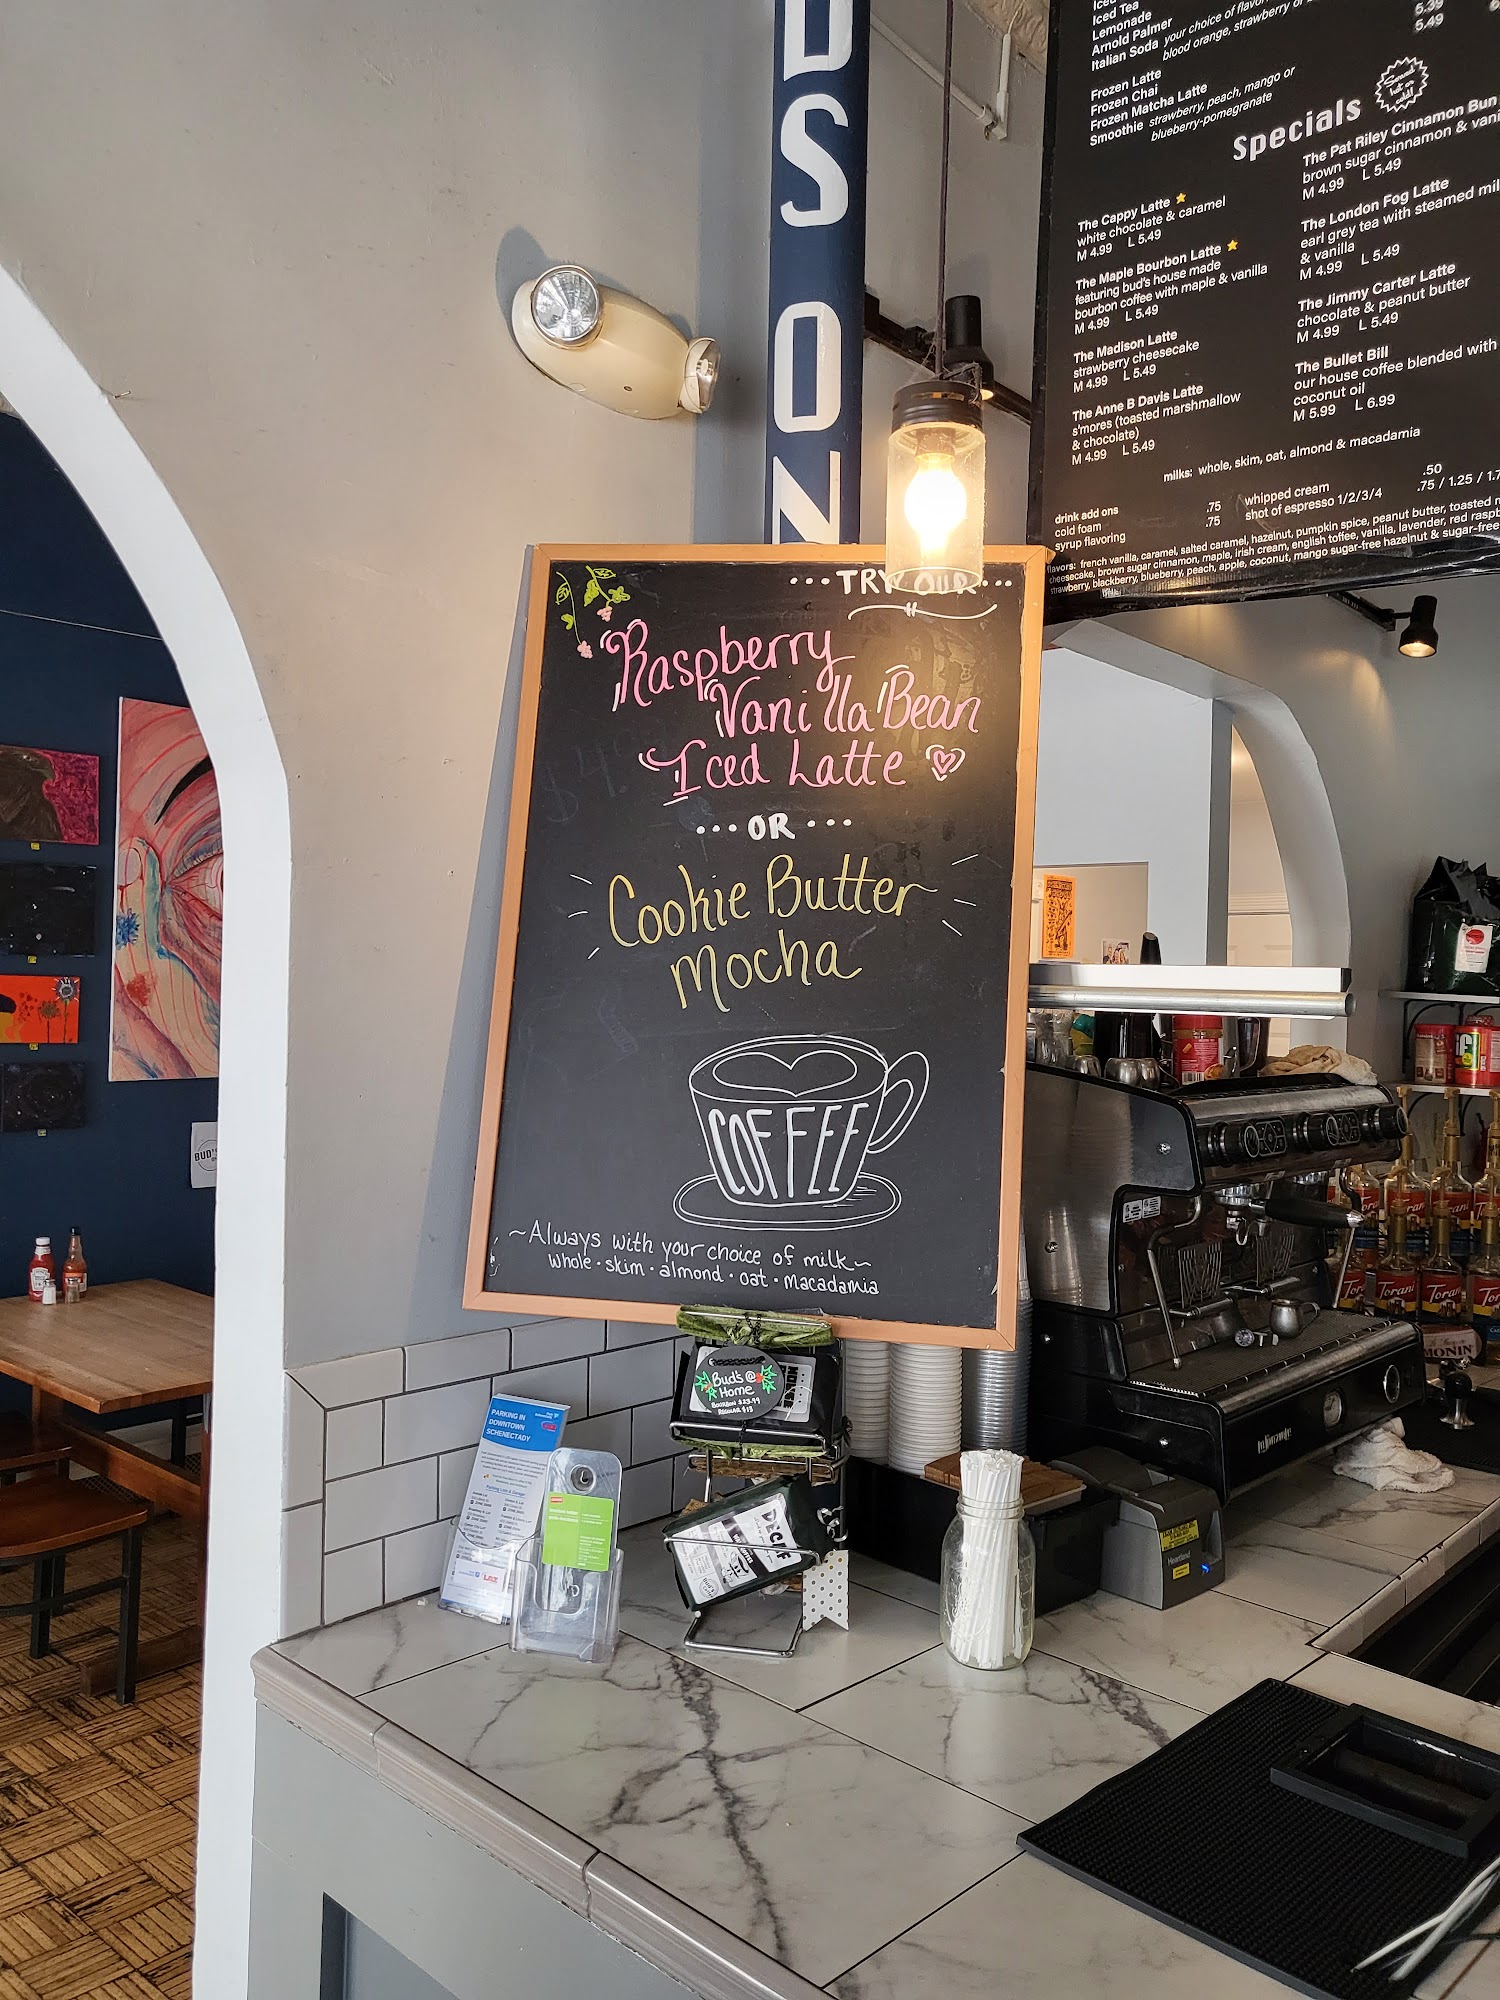 DS ON
Iced Tea
Lemonade
Arnold Palmer
Italian Soda your choice of
blood orange, strawberry or
5.39
5.49
Frozen Latte
Frozen Chai
Frozen Matcha Latte
Smoothie strawberry, peach, mango or
blueberry-pomegranate
Specials
The Cappy Latte
white chocolate & caramel
M 4.99 L 5.49
The Maple Bourbon Latte
featuring bud's house made
bourbon coffee with maple & vanilla
M 4.99 L 5.49
The Madison Latte
strawberry cheesecake
M 4.99 L 5.49
The Anne B Davis Latte
s'mores (toasted marshmallow
& chocolate)
M 4.99 L 5.49
The Pat Riley Cinnamon Bun
brown sugar cinnamon &
M 4.99 L 5.49
The London Fog Latte
earl grey tea with steamed
& vanilla
M 4.99 L 5.49
The Jimmy Carter Latte
chocolate & peanut butter
M 4.99 L 5.49
The Bullet Bill
our house coffee blended with
coconut oil
M 5.99 L 6.99
milks: whole, skim, oat, almond & macadamia
drink add ons
cold foam .75
syrup flavoring .75
whipped cream .50
shot of espresso 1/2/3/4 .75 / 1.25 /
french vanilla, caramel, salted caramel, hazelnut, pumpkin spice, peanut butter, toasted
brown sugar cinnamon, maple, irish cream, english toffee, vanilla, lavender, red
strawberry, blackberry, blueberry, peach, apple, coconut, mango sugar-free hazelnut & sugar-free
...TRY OUR...
Raspberry
Vanilla Bean
Iced Latte
...OR...
Cookie Butter
Mocha
COFFEE
~Always with your choice of milk~
whole · skim · almond · oat · macadamia
Bud's @
Home
BOURBON $23.99
REGULAR $15
PARKING IN
DOWNTOWN
SCHENECTADY
DECAF
Heartland
BUD'S
Torani
Torani
Torani
MONIN